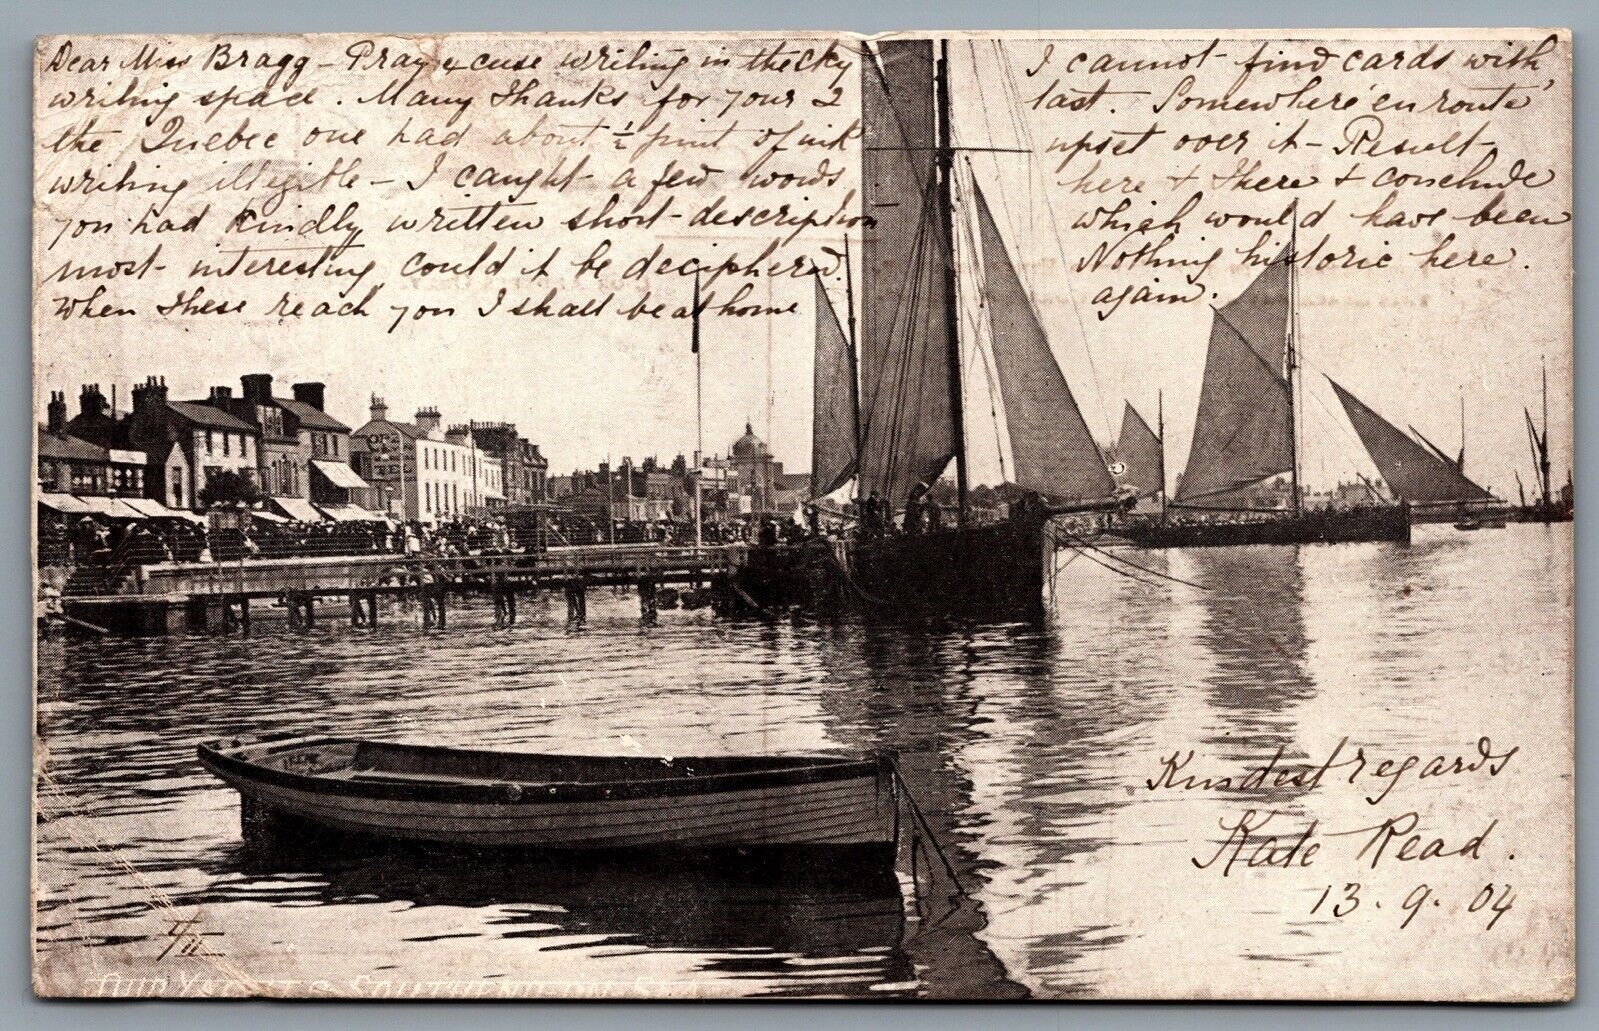 Dear Miss Bragg - Pray excuse writing in the sky I cannot find cards with
writing space. Many thanks for your 2 last. Somewhere 'en route'
the Quebec one had about ½ pint of ink upset over it - Result -
writing illegible - I caught a few words here & there & conclude
you had kindly written short description which would have been
most interesting could it be deciphered. Nothing historic here.
When these reach you I shall be at home again.
OP
TEL
IRENE
Kindest regards
Kate Read.
13.9.04
THE YACHTS SOUTHEND-ON-SEA